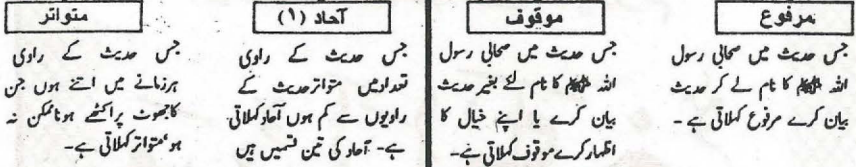 مرفوع
جس حدیث میں صحابی رسول
اللہ ﷺ کا نام لے کر حدیث
بیان کرے مرفوع کہلاتی ہے -
موقوف
جس حدیث میں صحابی رسول
اللہ ﷺ کا نام لئے بغیر حدیث
بیان کرے یا اپنے خیال کا
اظہار کرے موقوف کہلاتی ہے-
آحاد (۱)
جس حدیث کے راوی
تعداد میں متواتر حدیث کے
راویوں سے کم ہوں آحاد کہلاتی
ہے- آحاد کی تین قسمیں ہیں
متواتر
جس حدیث کے راوی
ہر زمانے میں اتنے ہوں جن
کا جھوٹ پر اکٹھے ہونا ممکن نہ
ہو، متواتر کہلاتی ہے-